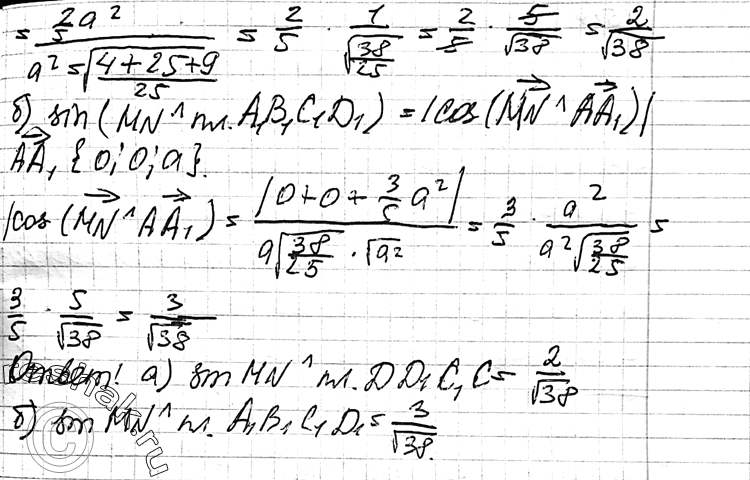 = (2/5 a²)/(a² = √((4+25+9)/25)) = 2/5 · 1/√(38/25) = 2/5 · 5/√38 = 2/√38
б) sin(MN ^ пл. A₁B₁C₁D₁) = |cos(MN→ ^ AA₁→)|
AA₁→ {0; 0; a}.
|cos(MN→ ^ AA₁→) = |0+0+3/5 a²|/(a√(38/25) · √a²) = 3/5 · a²/(a²√(38/25)) =
3/5 · 5/√38 = 3/√38
Ответ: а) sin MN ^ пл. DD₁C₁C = 2/√38
б) sin MN ^ пл. A₁B₁C₁D₁ = 3/√38.